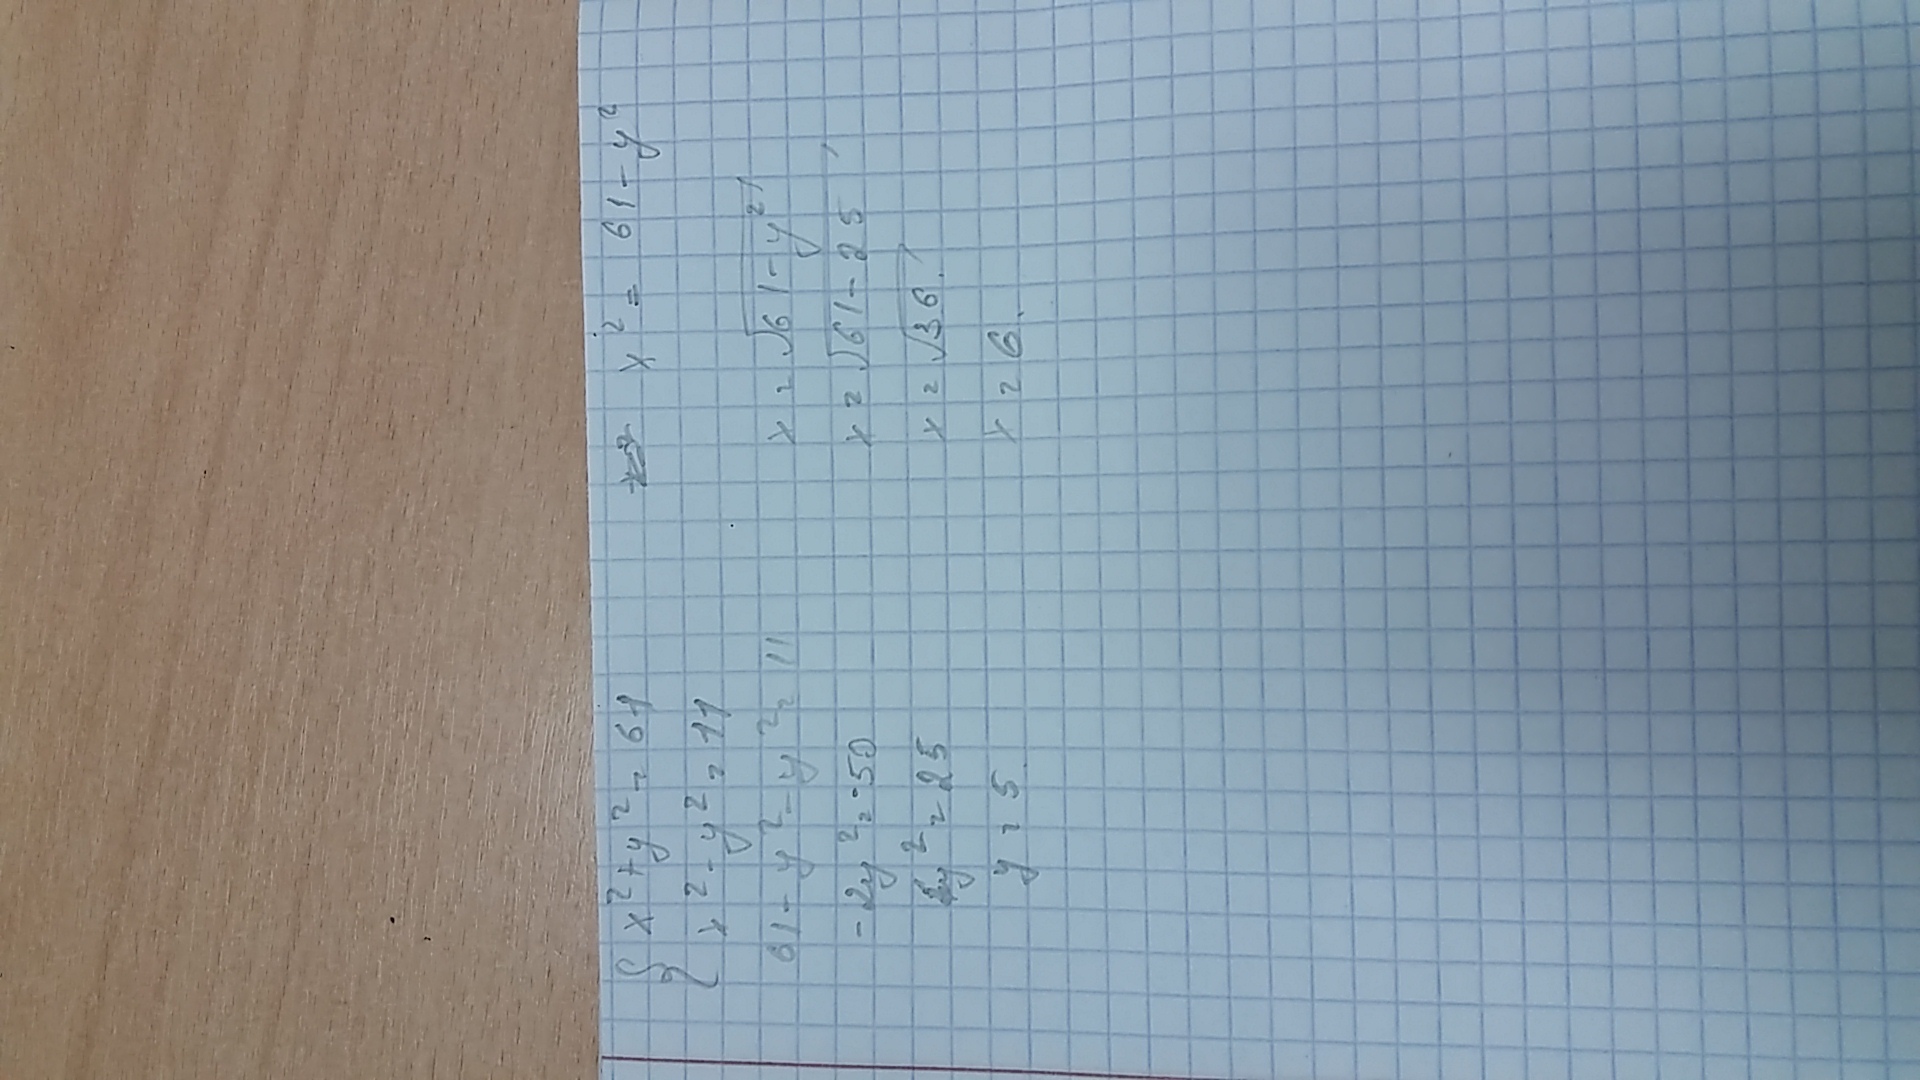 x² + y² = 61
x² - y² = 11
61 - y² - y² = 11
-2y² = -50
y² = 25
y = 5
x² = 61 - y²
x = √61 - y²
x = √61 - 25
x = √36.
x = 6.